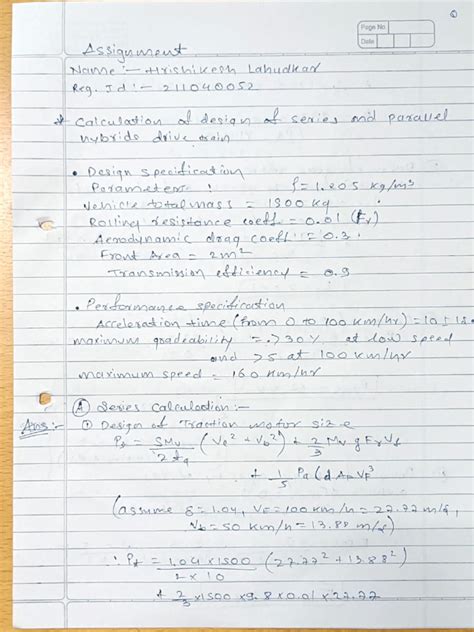 Page No
Date
Assignment
Name :- Hrishikesh Lahudkar
Reg. Id :- 211040052
* Calculation of design of series and parallel
hybrids drive train
• Design specification
Parameter : ρ = 1.205 kg/m³
vehicle total mass = 1500 kg
Rolling resistance coeff = 0.01 (Fr)
Aerodynamic drag coeff = 0.3
Front Area = 2m²
Transmission efficiency = 0.9
• Performance specification
Acceleration time (from 0 to 100 km/hr) = 10 s
maximum gradeability = > 30% at low speed
and > 5 at 100 km/hr
maximum speed = 160 km/hr
Ans:- (A) Series Calculation :-
① Design of Traction motor size
Pt = δMv / 2ta (Vf² + Vb²) + 2/3 Mv g Fr Vf
+ 1/5 Pa Cd Af Vf³
(assume δ = 1.04, Vf = 100 km/h = 27.77 m/s,
Vb = 50 km/h = 13.88 m/s)
∴ Pt = 1.04 × 1500 / 2 × 10 (27.77² + 13.88²)
+ 2/3 × 1500 × 9.8 × 0.01 × 27.77